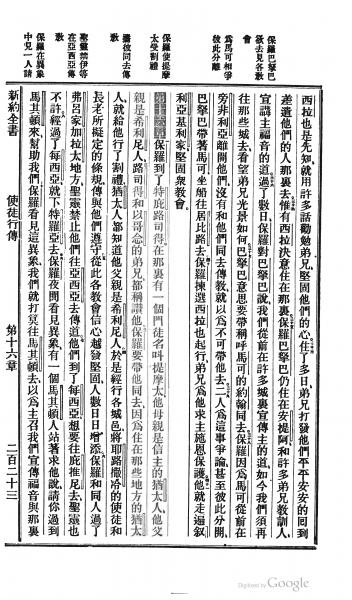 保羅巴拏巴
欲去見各教
會
爲馬可相爭
彼此分離
保羅使提摩
太受割禮
遊彼同去傳
教
聖靈禁伊等
在亞西亞傳
教
保羅在異象
中見一人請
西拉也是先知就用許多話勸勉弟兄堅固他們的心住了多日弟兄打發他們平平安安的回到
差遣他們的人那裏去惟有西拉決意住在那裏保羅巴拏巴仍住在安提阿和許多弟兄敎訓人
宣講主福音的道過了數日保羅對巴拏巴說我們從前在許多城裏宣傳主的道如今我們須再
往那些城去看望弟兄光景如何巴拏巴意思要帶稱呼馬可的約翰同去保羅因爲馬可從前在
旁非利亞離開他們沒有和他們同去傳敎就以爲不可帶他去二人爲這事爭論甚至彼此分開
巴拏巴帶著馬可坐船往居比路去保羅揀選西拉也起行弟兄爲他求主施恩保護他就走遍叙
利亞基利家堅固衆敎會
第十六章保羅到了特庇路司得在那裏有一個門徒名叫提摩太他母親是信主的猶太人他父
親是希利尼人路司得和以哥念的弟兄都稱讚他保羅要帶他同去因爲住在那些地方的猶太
人就給他行了割禮猶太人都知道他父親是希利尼人於是經行各城邑將耶路撒冷的使徒和
長老所擬定的條規傳與他們遵守從此各敎會信心越發堅固人數日日增添保羅和同人過了
弗呂家加拉太地方聖靈禁止他們往亞西亞去傳道他們到了每西亞想要往庇推尼去聖靈也
不許經過了每西亞就下特羅亞去保羅夜間看見異象有一個馬其頓人站著求他說請你過到
馬其頓來幫助我們保羅看見這異象我們就打算往馬其頓去以爲主召我們宣傳福音與那裏
新約全書
使徒行傳
第十六章
二百二十三
Digitized by Google